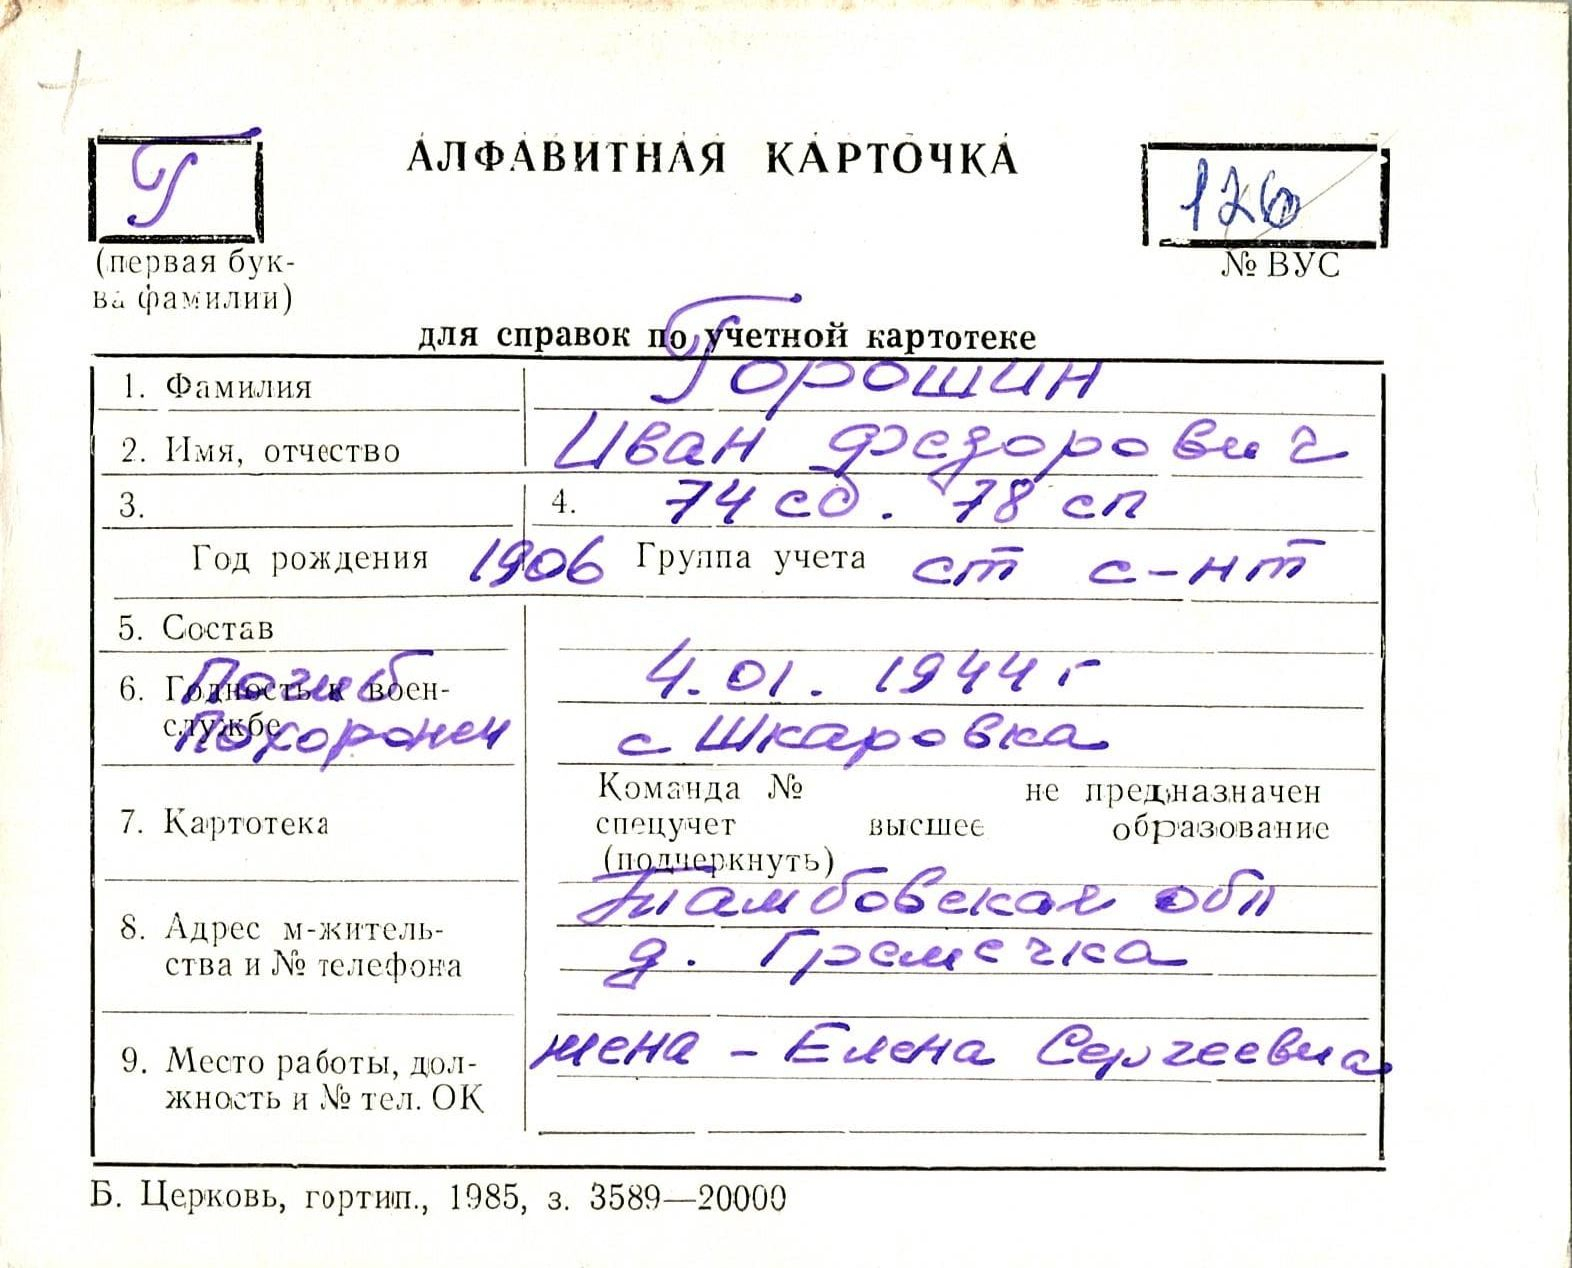 Г
АЛФАВИТНАЯ КАРТОЧКА
126
(первая бук-
ва фамилии)
№ ВУС
для справок по учетной картотеке
1. Фамилия Горошин
2. Имя, отчество Иван Федорович
3. 4. 74 сд. 78 сп
Год рождения 1906 Группа учета ст с-нт
5. Состав
6. Годность к воен- Погиб 4.01.1944 г
службе Похоронен с Шкаровка
Команда № не предназначен
7. Картотека спецучет высшее образование
(подчеркнуть)
Тамбовская обл
8. Адрес м-житель- д. Гремечка
ства и № телефона
9. Место работы, дол- жена - Елена Сергеевна
жность и № тел. ОК
Б. Церковь, гортип., 1985, з. 3589—20000